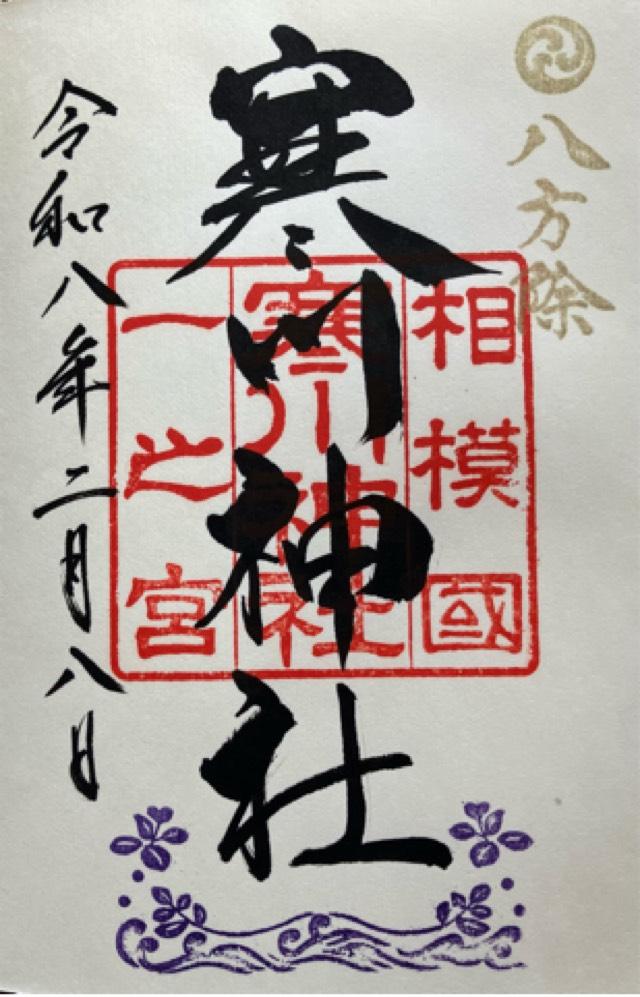 八方除
寒川神社
相模國
寒川神社
一之宮
令和八年二月八日